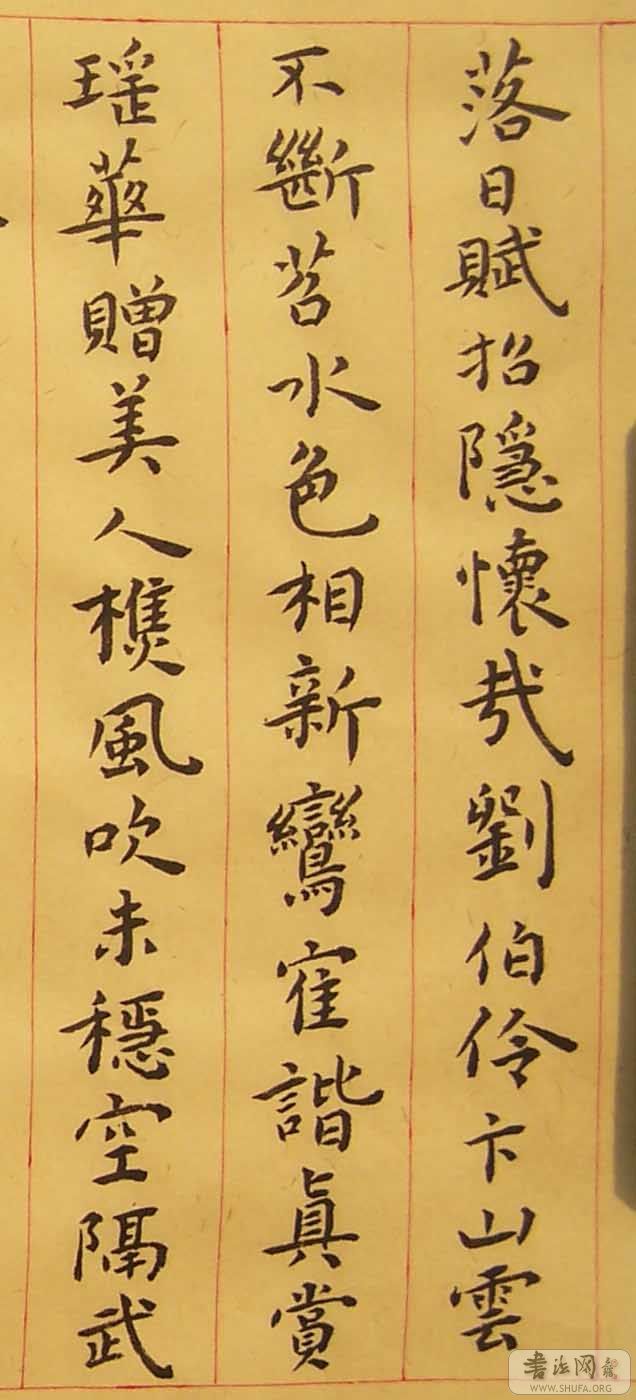 落日賦招隱懷哉劉伯伶卞山雲
不斷苕水色相新鸞寉諧真賞
瑶華贈美人樵風吹未穩空隔武
書法网
WWW.SHUFA.ORG